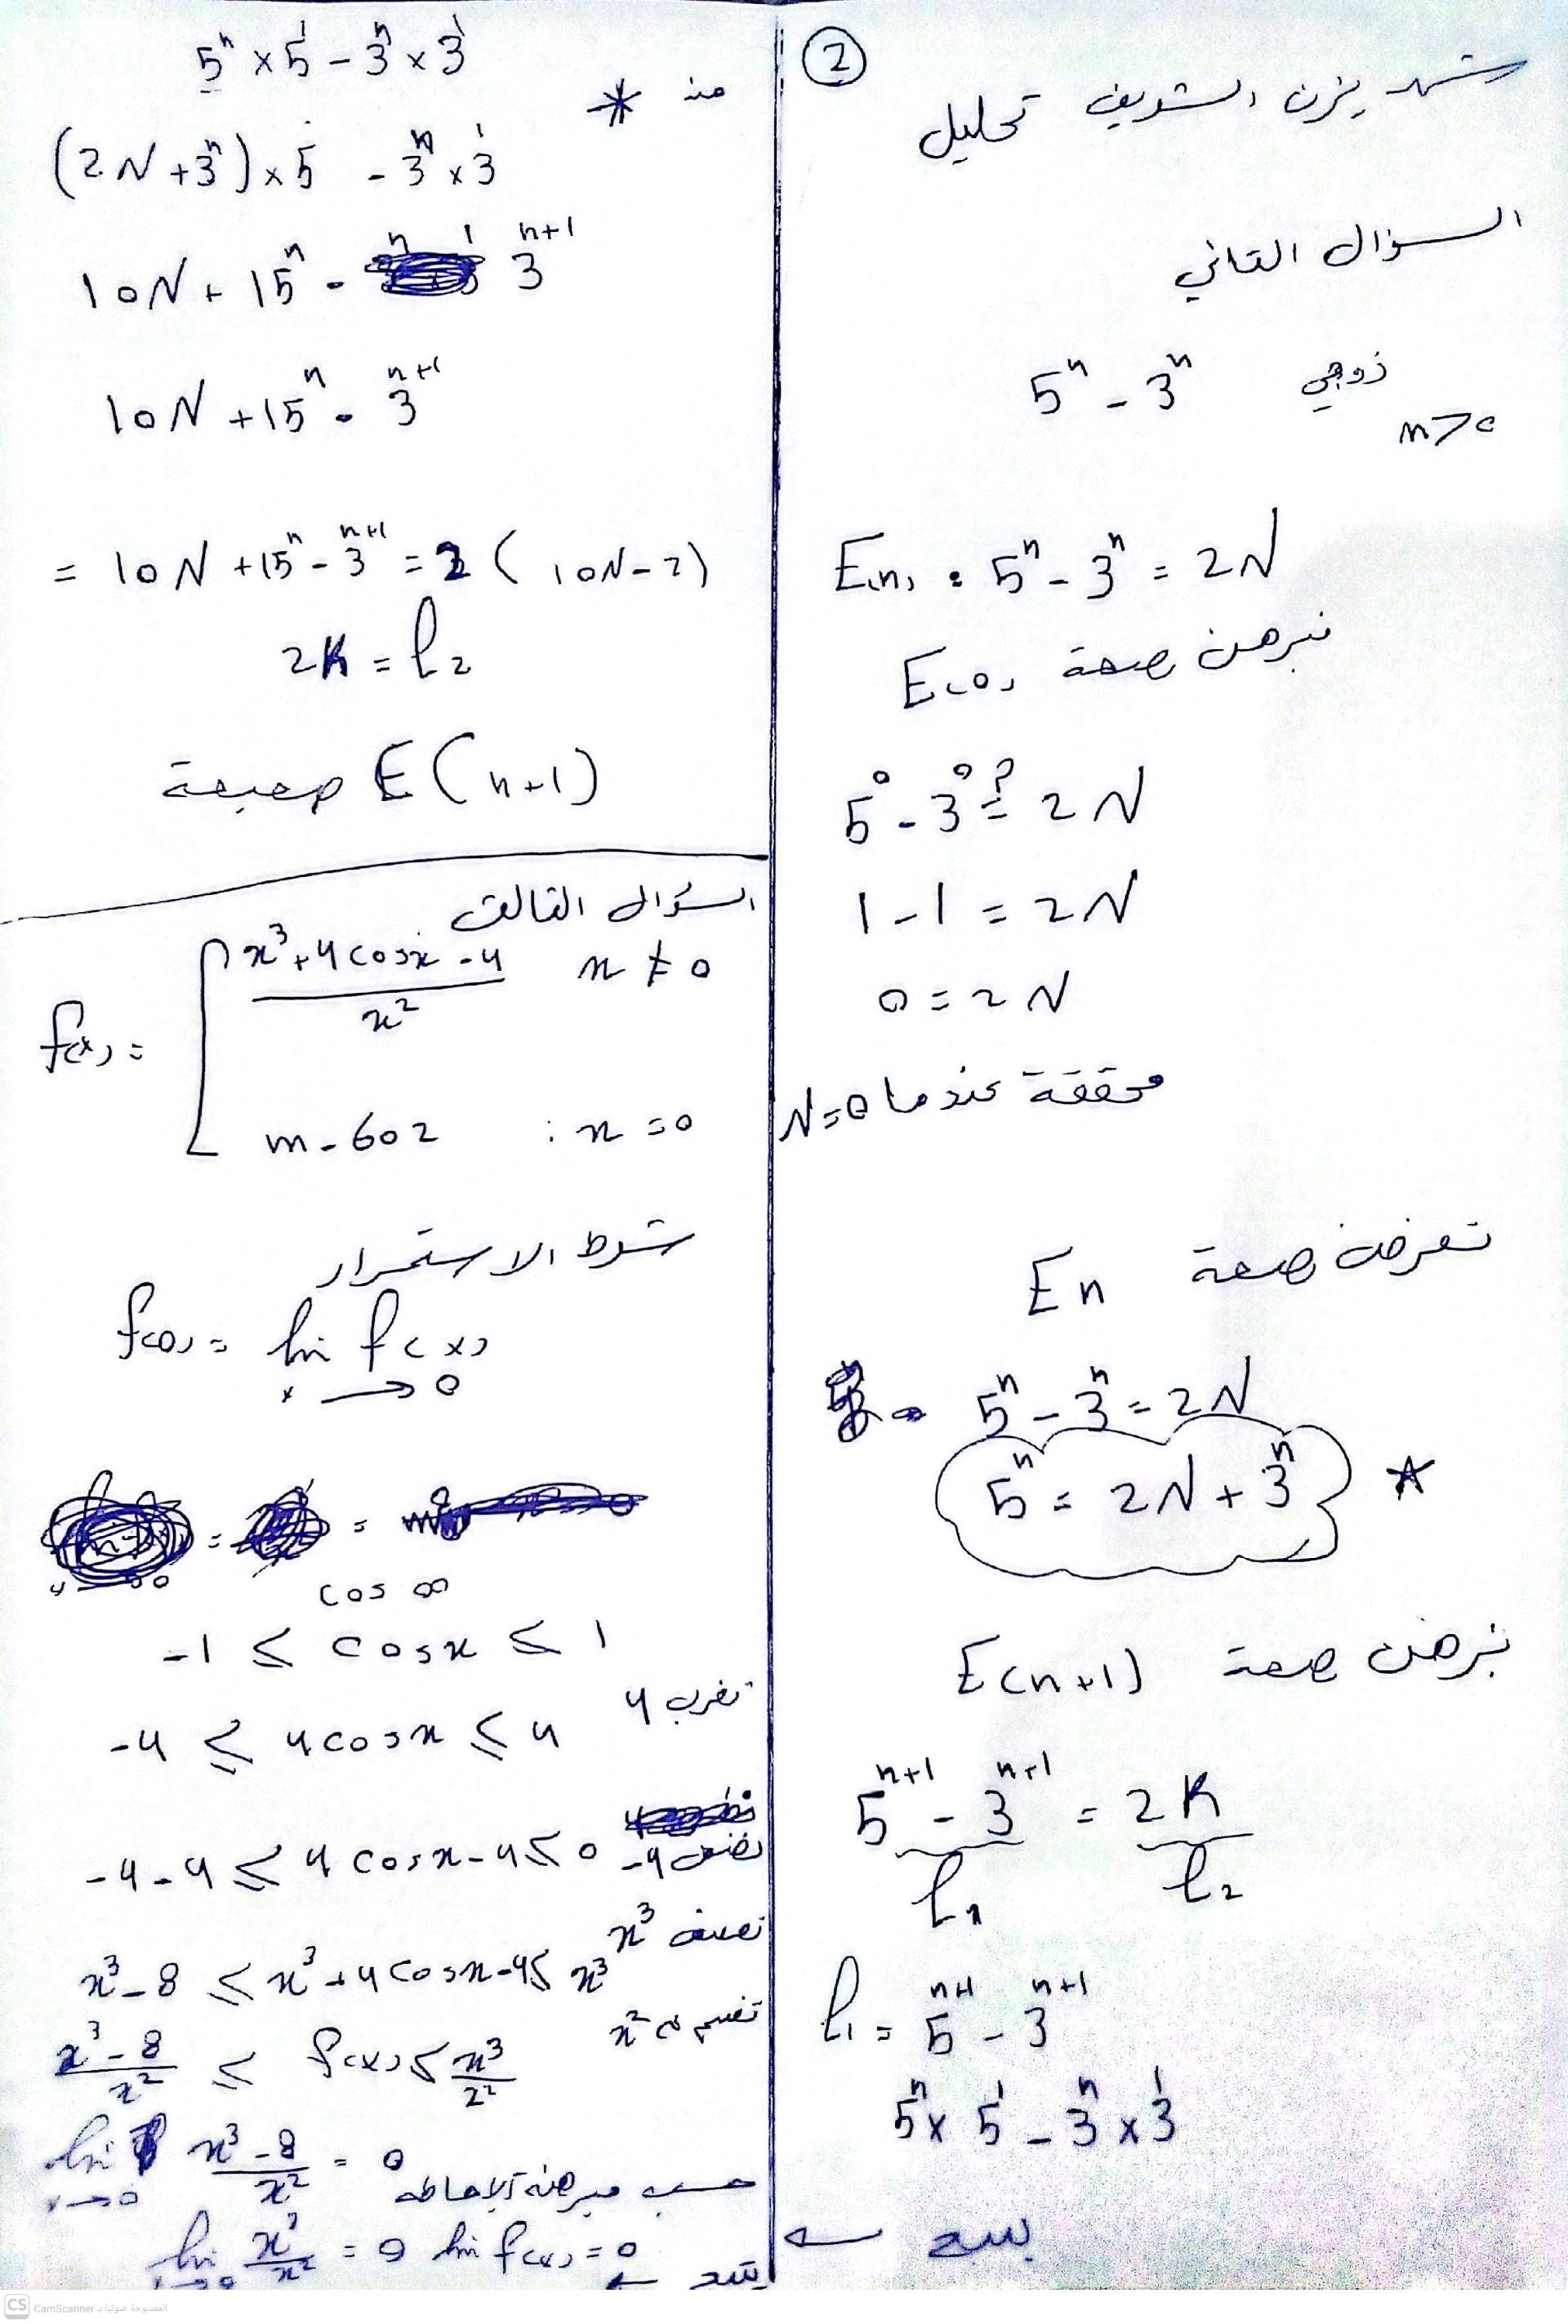 ②
شهد يزن الشريف تحليل
السؤال الثاني
5ⁿ - 3ⁿ زوجي
n>0
E(n) : 5ⁿ - 3ⁿ = 2N
نبرهن صحة E(0)
5⁰ - 3⁰ ≟ 2N
1 - 1 = 2N
0 = 2N
محققة عندما N=0
نفرض صحة En
5ⁿ - 3ⁿ = 2N
5ⁿ = 2N + 3ⁿ *
نبرهن صحة E(n+1)
5ⁿ⁺¹ - 3ⁿ⁺¹ = 2K
l₁ l₂
l₁ = 5ⁿ⁺¹ - 3ⁿ⁺¹
5ⁿ × 5¹ - 3ⁿ × 3¹
5ⁿ × 5¹ - 3ⁿ × 3¹
من *
(2N + 3ⁿ) × 5 - 3ⁿ × 3¹
10N + 15ⁿ - 3ⁿ⁺¹
10N + 15ⁿ - 3ⁿ⁺¹
= 10N + 15ⁿ - 3ⁿ⁺¹ = 2 (10N - 2)
2K = l₂
E(n+1) صحيحة
السؤال الثالث
f(x) = x³ + 4cosx - 4 / x² x ≠ 0
m - 602 : x = 0
شرط الاستمرار
f(0) = lim f(x)
x → 0
cos ∞
-1 ≤ cosx ≤ 1
نضرب 4
-4 ≤ 4cosx ≤ 4
-4-4 ≤ 4cosx-4 ≤ 0 نضيف -4
نضيف x³
x³-8 ≤ x³+4cosx-4 ≤ x³
نقسم على x²
x³-8/x² ≤ f(x) ≤ x³/x²
lim x³-8/x² = 0
x→0
حسب مبرهنة الإحاطة
lim x³/x² = 0 lim f(x) = 0
x→0